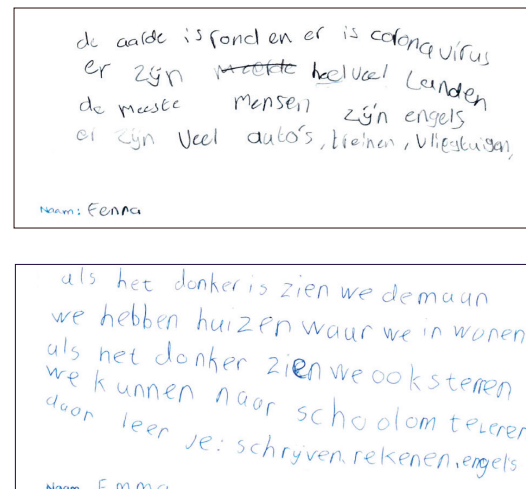 de aarde is rond en er is coronavirus
er zijn heel veel landen
de meeste mensen zijn engels
er zijn veel auto's, treinen, vliegtuigen,
Naam: Fenna
als het donker is zien we de maan
we hebben huizen waar we in wonen
als het donker zien we ook sterren
we kunnen naar school om te leren
daar leer je: schrijven, rekenen, engels
Naam Emma